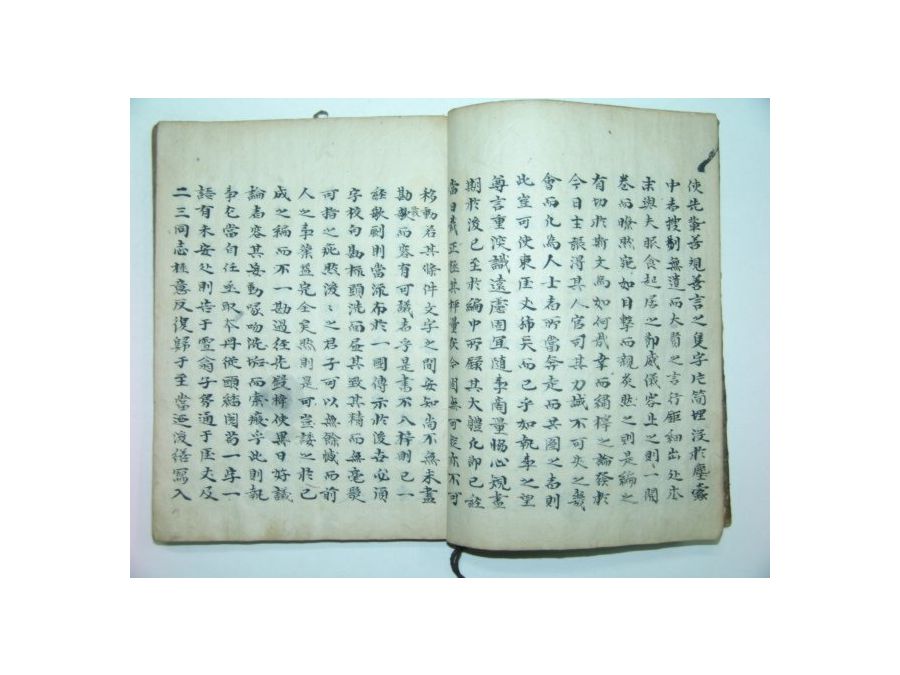 使先輩善規善言之隻字片簡埋沒於塵囊
中者搜剔無遺而大賢之言行鉅細出處本
末與夫眠食起居之節威儀容止之則一開
卷而瞭然宛如目擊而親炙然之則是編之
有切於斯文爲如何哉幸而繡梓之論發於
今日主張得其人官司其力誠不可失之幾
會而凡爲人士者所當奔走而共圖之者則
此豈可使東匡丈獨任而已乎如執事之望
尊言重深識遠慮固宜隨事商量賜心規畫
期於後已至於編中所錄其大體凡節已
當日裁正極其稱量然今固無可疑亦不可
移動若其條件文字之間安知尚不無未盡
勘覈而容有可議者乎是書不入梓則已一
經欹劂則當派布於一國傳示於後世必須
字校句勘梳頭洗而屆其致其精而無毫髮
可指之疵然後後之君子可以無餘憾而前
人之事業益完全矣然則是可豈諉之於已
成之稿而不一勘過徑先鋟梓使異日好議
論者容其筆動喙吻洗垢而索瘢乎此則執
事尤當自任亟取本丹從頭結圈若一字一
語有未安處則告于雪翁子努通于匡丈及
二三同志極意反復歸于至當迤後繕寫入